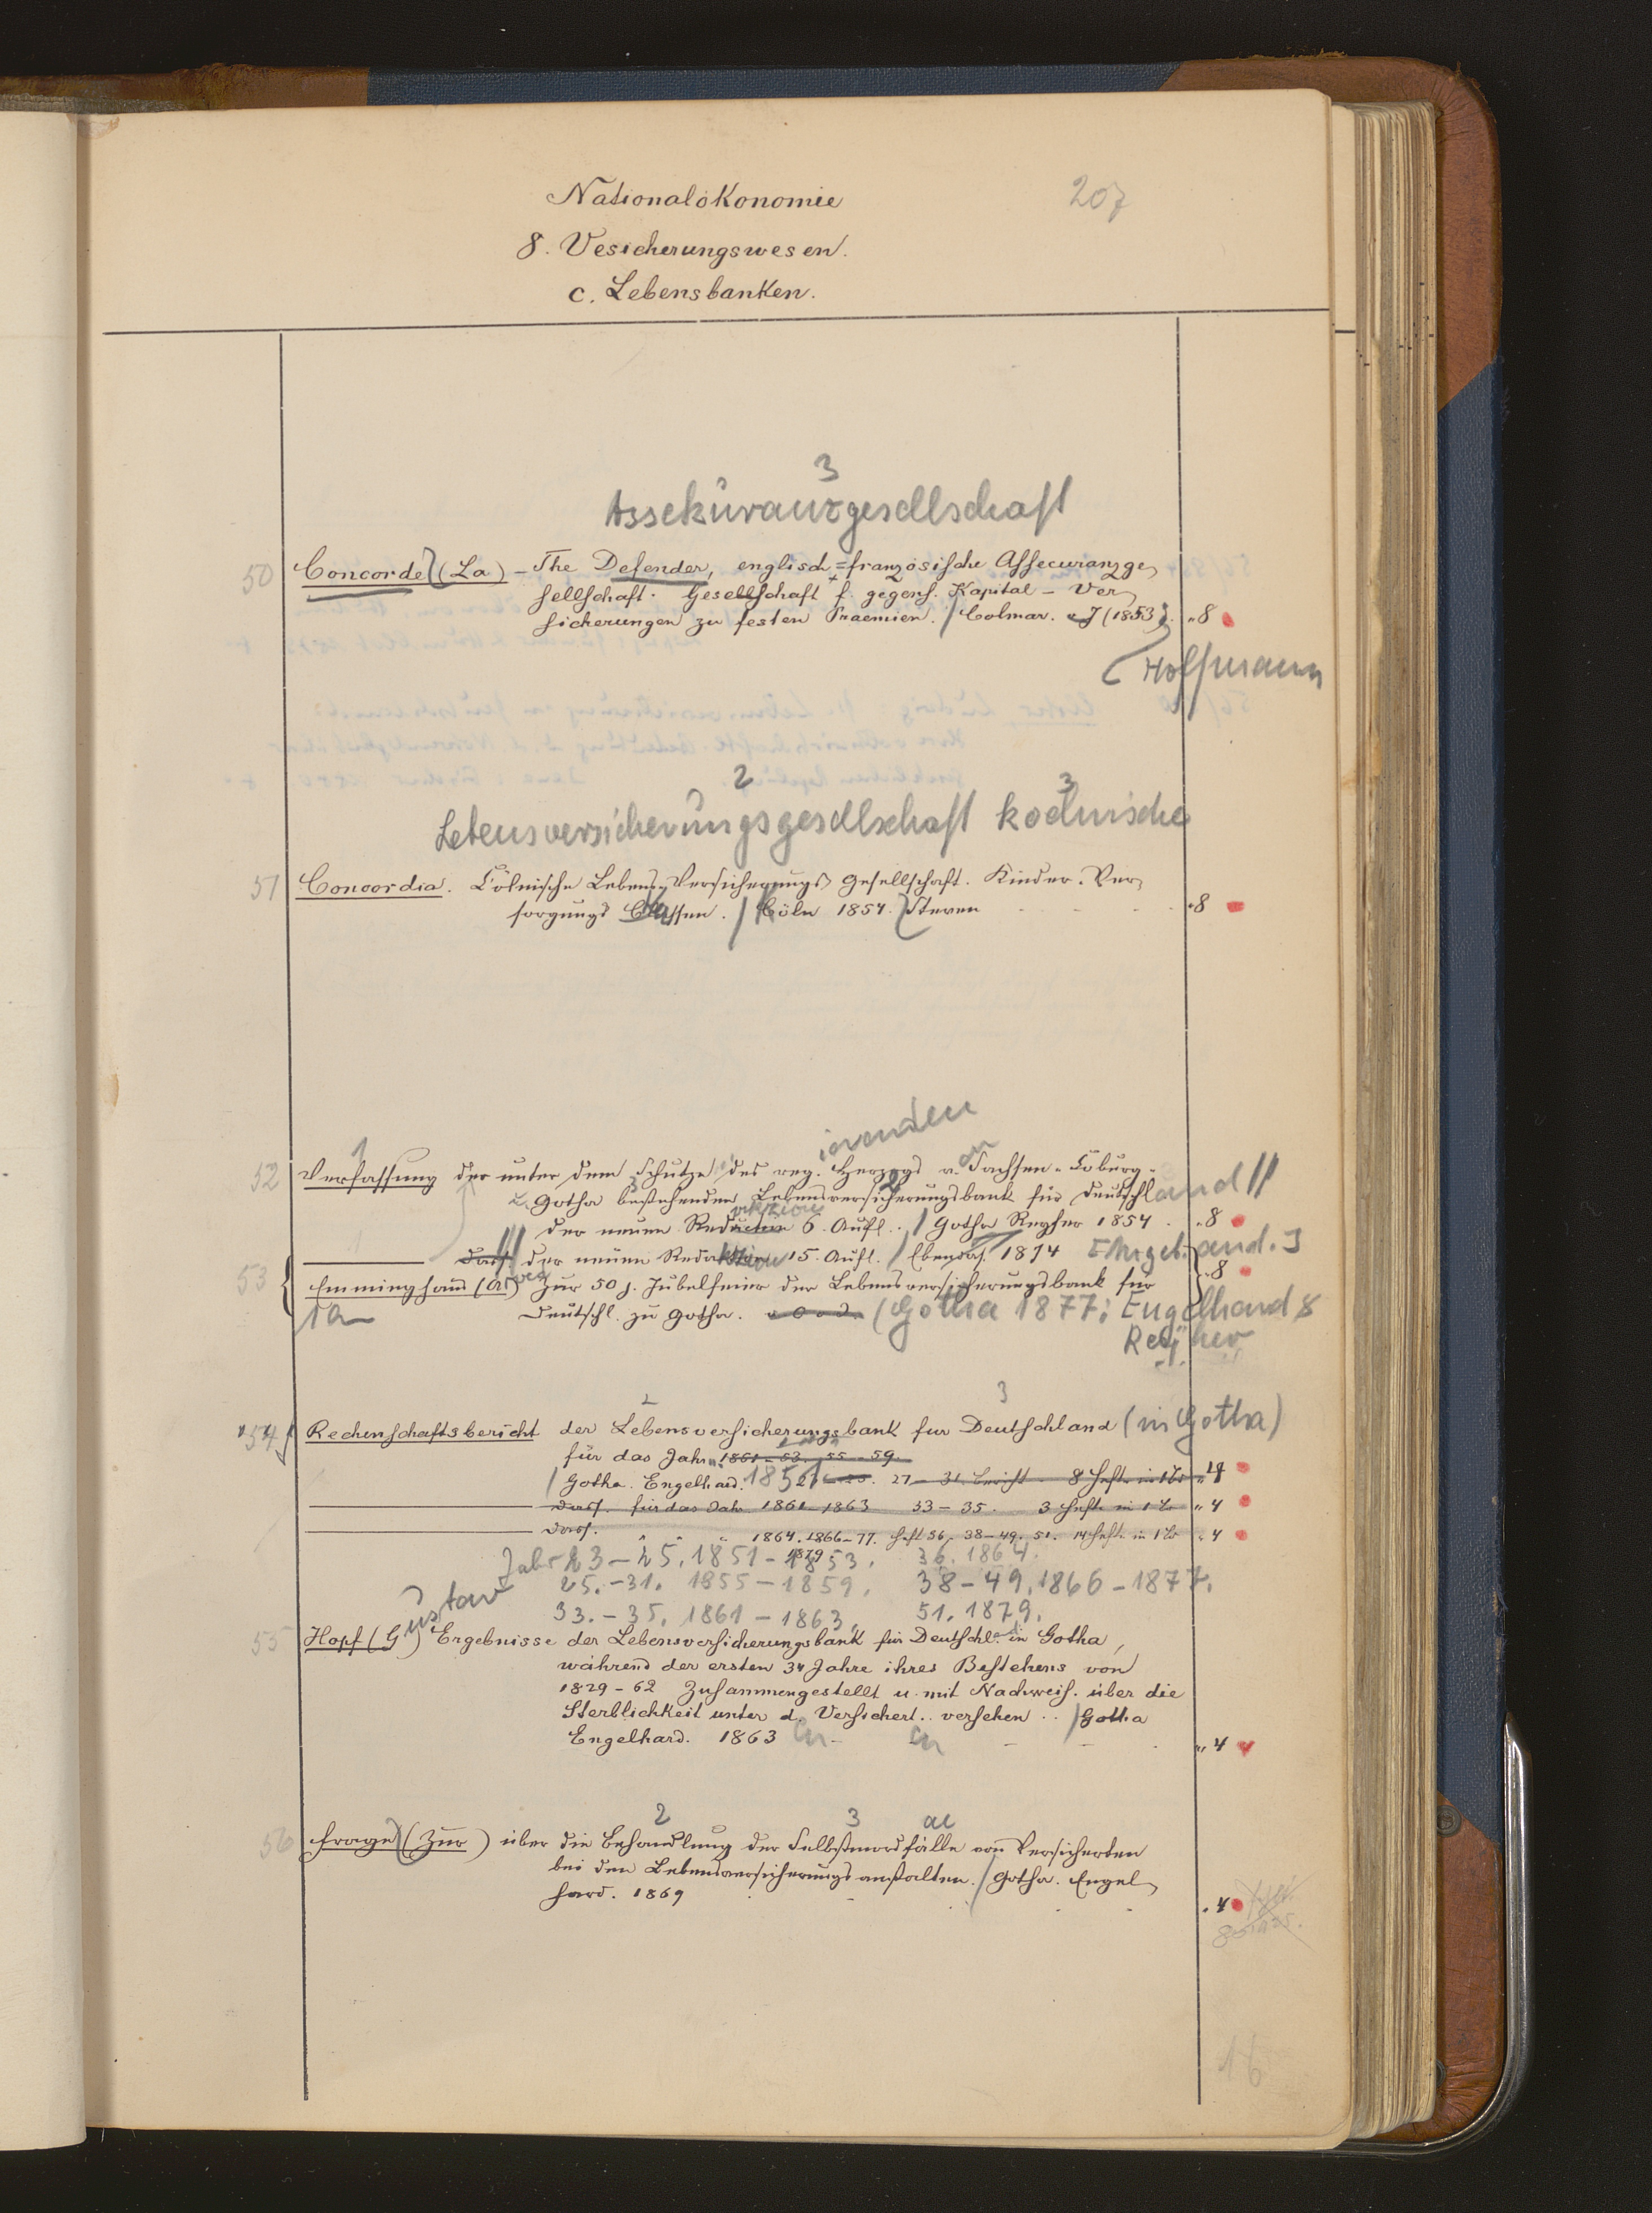 Nationalökonomie
207
8. Vesicherungswesen.
c. Lebensbanken.
3
Assekuranzgesellschaft
50 Concorde (La) – The Defender, englisch=französische Assecuranzge-
sellschaft. Gesellschaft f. gegens. Kapital – Ver-
sicherungen zu festen Praemien. / Colmar. J (1853). „8
Hoffmann
2 3
Lebensversicherungsgesellschaft koelnische
51 Concordia. Cölnische Lebens-Versicherungs Gesellschaft. Kinder-Ver-
sorgungs Classen. / Cöln 1854. Steven „8
ierenden
1
52 Verfassung der unter dem Schutze des reg. Herzogs v. Sachsen-Coburg-
u. Gotha bestehenden Lebensversicherungsbank für Deutschland //
der neuen Redaction 6. Aufl. / Gotha Reyher 1854. „8
Dass. der neuen Redaktion 15. Aufl. / Ebendas. 1874
53 Emminghaus (A.) zur 50 j. Jubelfeier der Lebensversicherungsbank für „8
1a Deutschl. zu Gotha. (Gotha 1877; Engelhard &
Reyher
2 3
54 Rechenschaftsbericht der Lebensversicherungsbank fur Deutschland (in Gotha)
für das Jahr 1851–53. 55–59.
/ Gotha. Engelhard. 1851 27–31. Bericht. 8 Hefte in 1 Bd „4
Dass. für das Jahr 1861–1863 33–35. 3 Hefte in 1 Bd „4
Dass. „ „ „ 1864. 1866–77. Heft 36. 38–49. 51. 14 Hefte in 1 Bd „4
1879
Jahr 23–25. 1851–1853. 36. 1864.
25.–31. 1855–1859. 38–49. 1866–1877.
33.–35. 1861–1863. 51. 1879.
Gustav
55 Hopf (G.) Ergebnisse der Lebensversicherungsbank für Deutschl. in Gotha,
während der ersten 34 Jahre ihres Bestehens von
1829–62 Zusammengestellt u. mit Nachweis. über die
Sterblichkeit unter d. Versichert. versehen . . / Gotha
Engelhard. 1863 „4
2 3
56 Frage (Zur) über die Behandlung der Selbstmordfälle von Versicherten
bei den Lebensversicherungsanstalten. / Gotha. Engel-
hard. 1869 „4
16